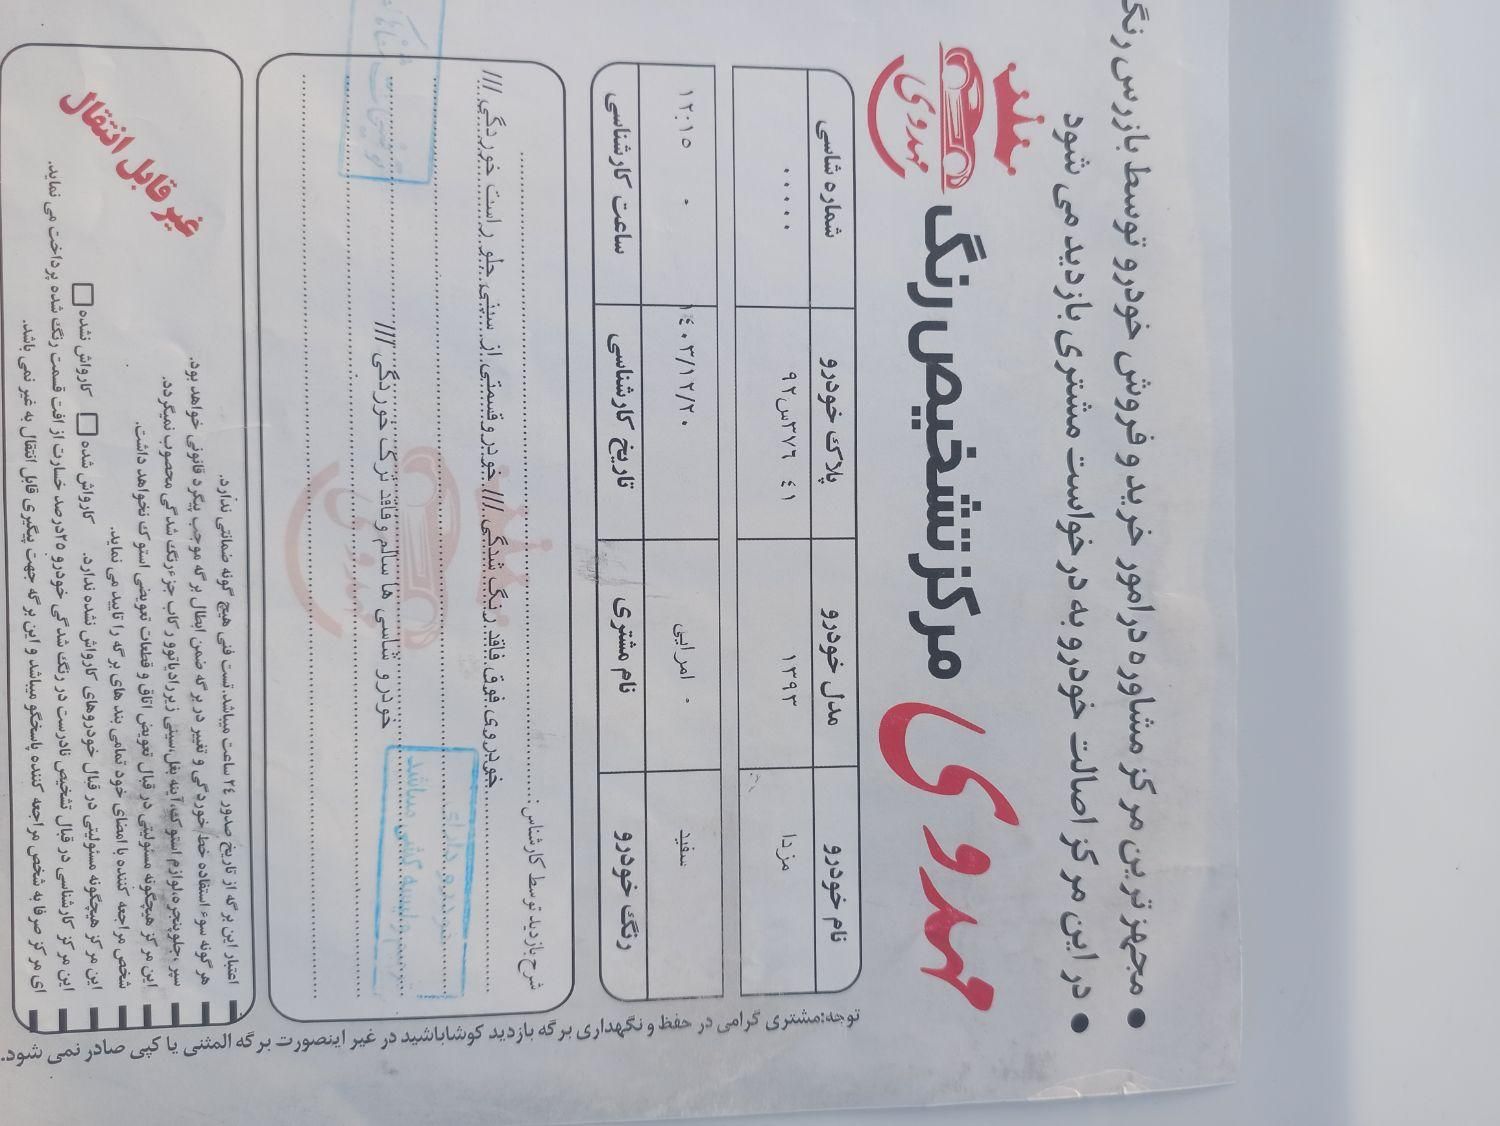 مجهزترین مرکز مشاوره درامور خرید و فروش خودرو توسط بازرس رنگ
در این مرکز اصالت خودرو به درخواست مشتری بازدید می شود
مرکز تشخیص رنگ مهدوی
مهدوی
نام خودرو مدل خودرو پلاک خودرو شماره شاسی
مزدا ۱۳۹۳ ۴۱ ۳۷۶س۹۲ ۰۰۰۰۰
رنگ خودرو نام مشتری تاریخ کارشناسی ساعت کارشناسی
سفید ۰ امرایی ۱۴۰۳/۱۲/۲۰ ۰ ۱۲:۱۵
شرح بازدید توسط کارشناس:
خودروی فوق فاقد رنگ شدگی /// خودرو قسمتی از سینی جلو راست خوردگی ///
خودرو شاسی ها سالم و فاقد ترک خوردگی ///
خودرو دارای
لیسه گیشی میباشد
اعتبار این برگه از تاریخ صدور ۲۴ ساعت میباشد.تست فنی هیچ گونه ضمانتی ندارد.
هرگونه سوء استفاده خط خوردگی و تغییر در برگه ضمن ابطال برگه موجب پیگرد قانونی خواهد بود.
سپر،جلوپنجره،لوازم استوک،آینه بغل،سینی زیررادیاتوو رکاب جزءرنگ شدگی محصوب نمیگردد.
این مرکز هیچگونه مسئولیتی در قبال تعویض اتاق و قطعات تعویضی استوک نخواهد داشت.
شخص مراجعه کننده با امضای خود تمامی بند های برگه را تایید می نماید.
این مرکز هیچگونه مسئولیتی در قبال خودروهای کارواش نشده ندارد. کارواش شده کارواش نشده
این مرکز کارشناسی در قبال تشخیص نادرست در رنگ شدگی خودرو ۲۵درصد خسارت از افت قسمت رنگ شده پرداخت می نماید.
ای مرکز صرفا به شخص مراجعه کننده پاسخگو میباشد و این برگه جهت پیگیری قابل انتقال به غیر نمی باشد.
غیر قابل انتقال
توجه:مشتری گرامی در حفظ و نگهداری برگه بازدید کوشاباشید در غیر اینصورت برگه المثنی یا کپی صادر نمی شود.